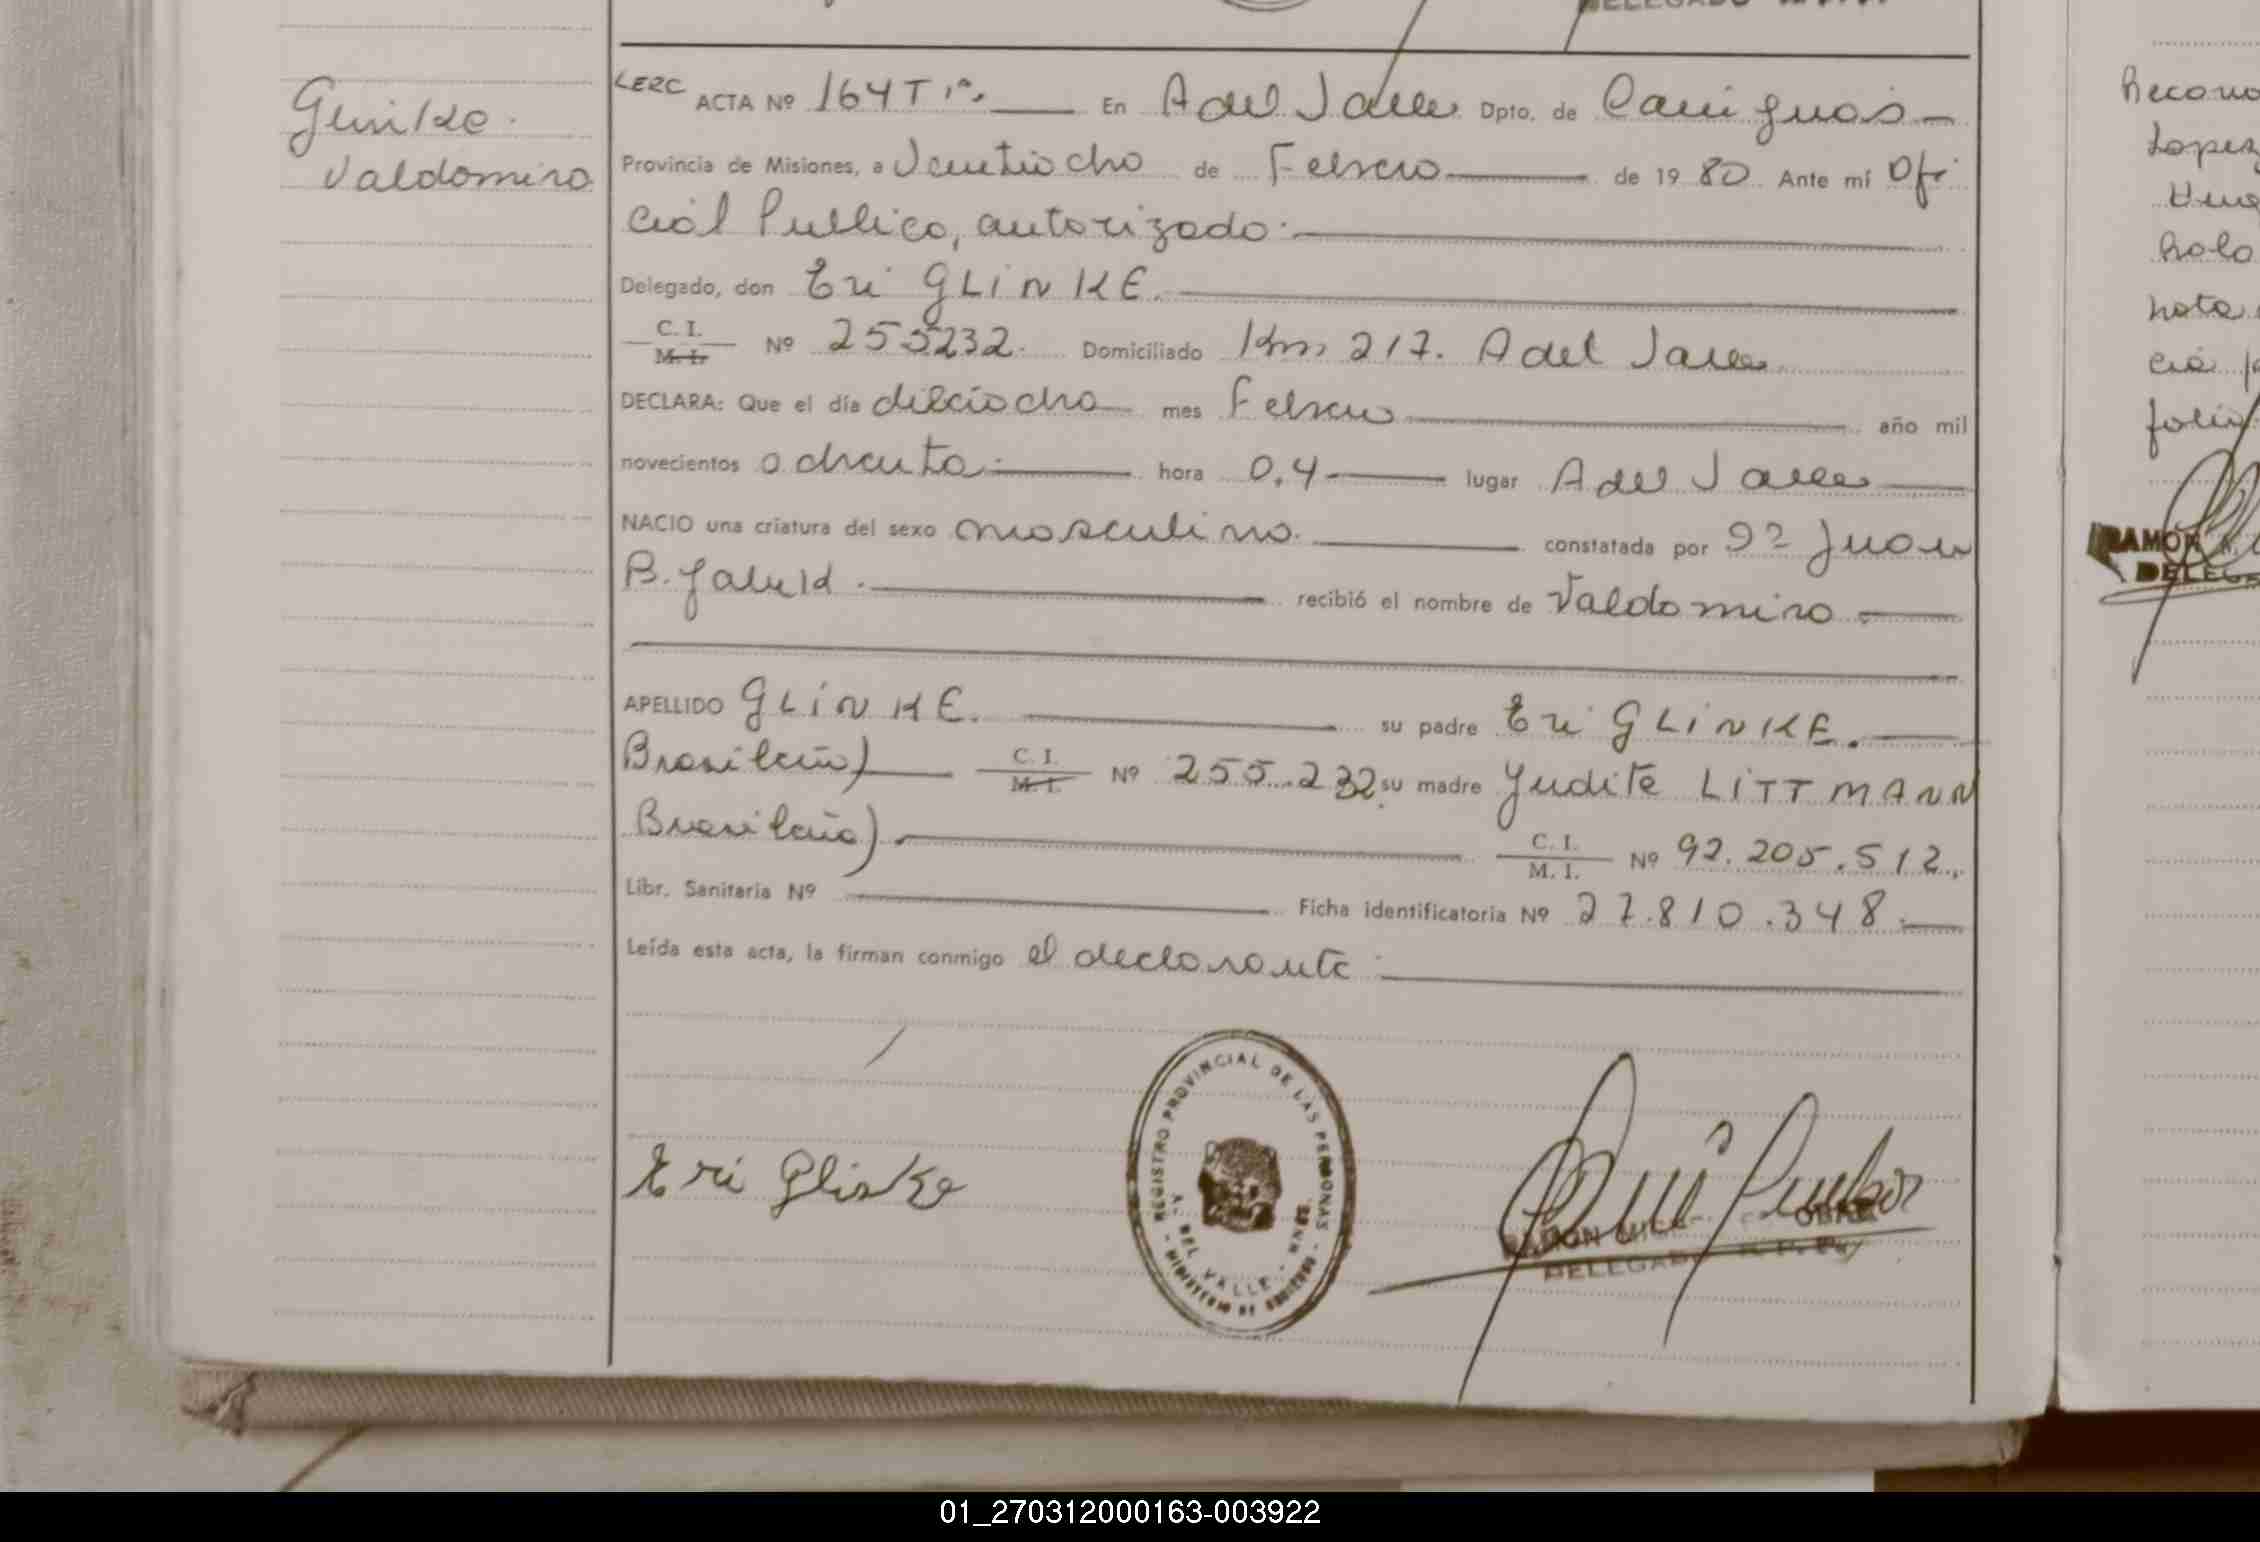 Glinke
Valdomiro
LERC ACTA Nº 164 T 1º. En A del Valle Dpto. de Cainguás
Provincia de Misiones, a Veintiocho de Febrero de 1980 Ante mí Ofi
cial Publico, autorizado.
Delegado, don Eri GLiNKE.
C. I. M. I. Nº 255232. Domiciliado Km 217. A del Valle
DECLARA: Que el día dieciocho mes Febrero año mil
novecientos ochenta hora 0,4 lugar A del Valle
NACIO una criatura del sexo masculino. constatada por Juan
B. recibió el nombre de Valdomiro
APELLIDO GLiNKE. su padre Eri GLiNKE.
Brasileño) C. I. M. I. Nº 255.232 su madre Yudite LiTTMANN
Brasileña) C. I. M. I. Nº 92.205.512.
Libr. Sanitaria Nº Ficha identificatoria Nº 27.810.348.
Leída esta acta, la firman conmigo el declarante
Eri Glinke
REGISTRO PROVINCIAL DE LAS PERSONAS
A. DEL VALLE - MNES.
MINISTERIO DE GOBIERNO
RAMON
DELEGADO R. P. P.
Lopez
nota
folio
RAMON
01_270312000163-003922